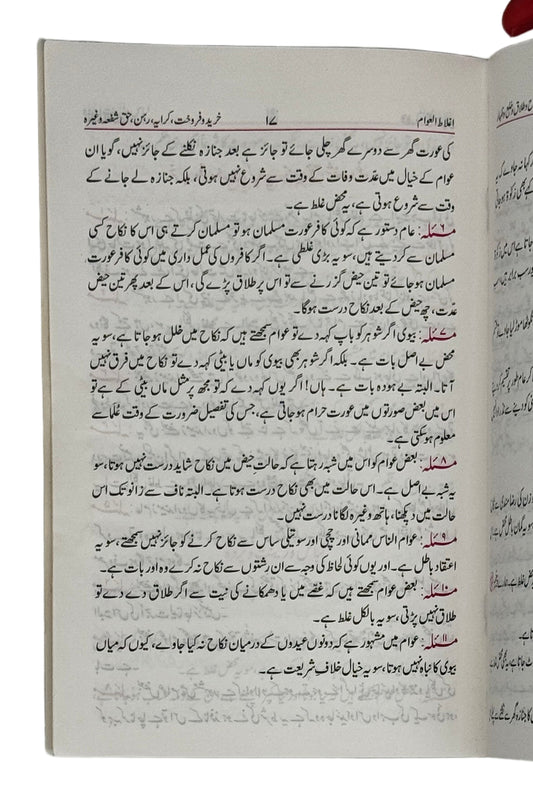 اغلاط العوام ۱۷ خرید و فروخت، کرایہ، رہن، حق شفعہ وغیرہ
کی عورت گھر سے دوسرے گھر چلی جائے تو جائز ہے بعد جنازہ نکلنے کے جائز نہیں، گویا ان
عوام کے خیال میں عدت وفات کے وقت سے شروع نہیں ہوتی، بلکہ جنازہ لے جانے کے
وقت سے شروع ہوتی ہے، یہ محض غلط ہے۔
مسئلہ ۶: عام دستور ہے کہ کوئی کافر عورت مسلمان ہو تو مسلمان کرتے ہی اس کا نکاح کسی
مسلمان سے کر دیتے ہیں، سو یہ بڑی غلطی ہے۔ اگر کافروں کی عمل داری میں کوئی کافر عورت
مسلمان ہو جائے تو تین حیض گزرنے سے تو اس پر طلاق پڑے گی، اس کے بعد پھر تین حیض
عدت، چھ حیض کے بعد نکاح درست ہوگا۔
مسئلہ ۷: بیوی اگر شوہر کو باپ کہہ دے تو عوام سمجھتے ہیں کہ نکاح میں خلل ہو جاتا ہے، سو یہ
محض بے اصل بات ہے۔ بلکہ اگر شوہر بھی بیوی کو ماں یا بیٹی کہہ دے تو نکاح میں فرق نہیں
آتا۔ البتہ بے ہودہ بات ہے۔ ہاں! اگر یوں کہہ دے کہ تو مجھ پر مثل ماں بیٹی کے ہے تو
اس میں بعض صورتوں میں عورت حرام ہو جاتی ہے، جس کی تفصیل ضرورت کے وقت علما سے
معلوم ہو سکتی ہے۔
مسئلہ ۸: بعض عوام کو اس میں شبہ رہتا ہے کہ حالت حیض میں نکاح شاید درست نہیں ہوتا، سو
یہ شبہ بے اصل ہے۔ اس حالت میں بھی نکاح درست ہوتا ہے۔ البتہ ناف سے زانو تک اس
حالت میں دیکھنا، ہاتھ وغیرہ لگانا درست نہیں۔
مسئلہ ۹: عوام الناس ممانی اور چچی اور سوتیلی ساس سے نکاح کرنے کو جائز نہیں سمجھتے، سو یہ
اعتقاد باطل ہے۔ اور یوں کوئی لحاظ کی وجہ سے ان رشتوں سے نکاح نہ کرے وہ اور بات ہے۔
مسئلہ ۱۰: بعض عوام سمجھتے ہیں کہ غصے میں یا دھمکانے کی نیت سے اگر طلاق دے دے تو
طلاق نہیں پڑتی، سو یہ بالکل غلط ہے۔
مسئلہ ۱۱: عوام میں مشہور ہے کہ دونوں عیدوں کے درمیان نکاح نہ کیا جاوے، کیوں کہ میاں
بیوی کا نباہ نہیں ہوتا، سو یہ خیال خلافِ شریعت ہے۔